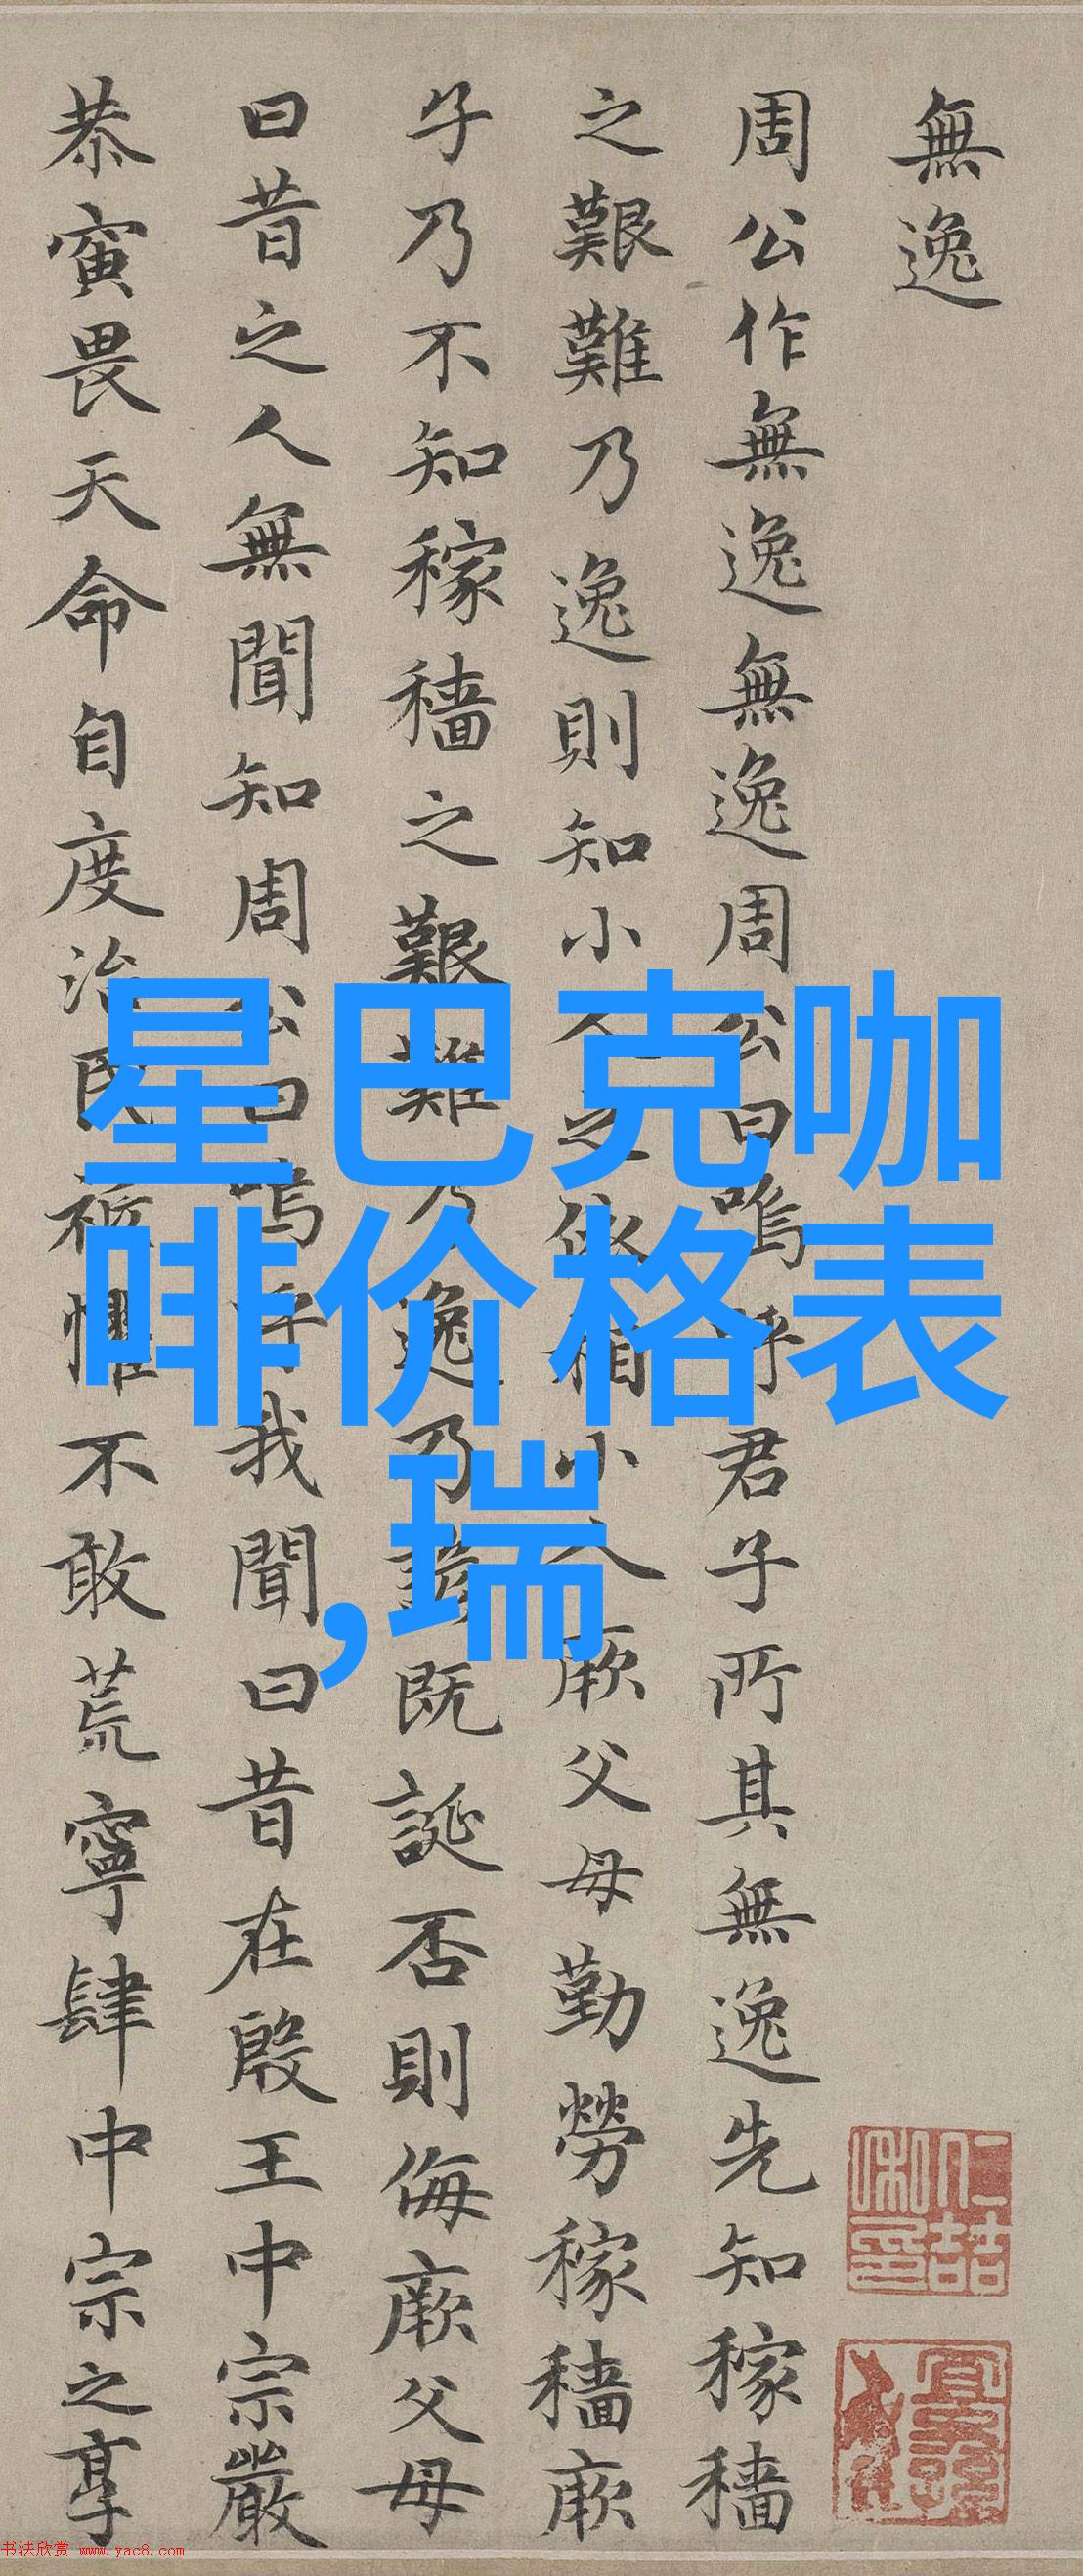 無逸
周公作無逸無逸周公曰嗚呼君子所其無逸先知稼穡
之艱難乃逸則知小人之依相小人厥父母勤勞稼穡厥
子乃不知稼穡之艱難乃逸乃諺既誕否則侮厥父母
曰昔之人無聞知周公曰嗚呼我聞曰昔在殷王中宗嚴
恭寅畏天命自度治民祗懼不敢荒寧肆中宗之享
星巴克咖
啡价格表
,瑞
书法欣赏 www.yac8.com